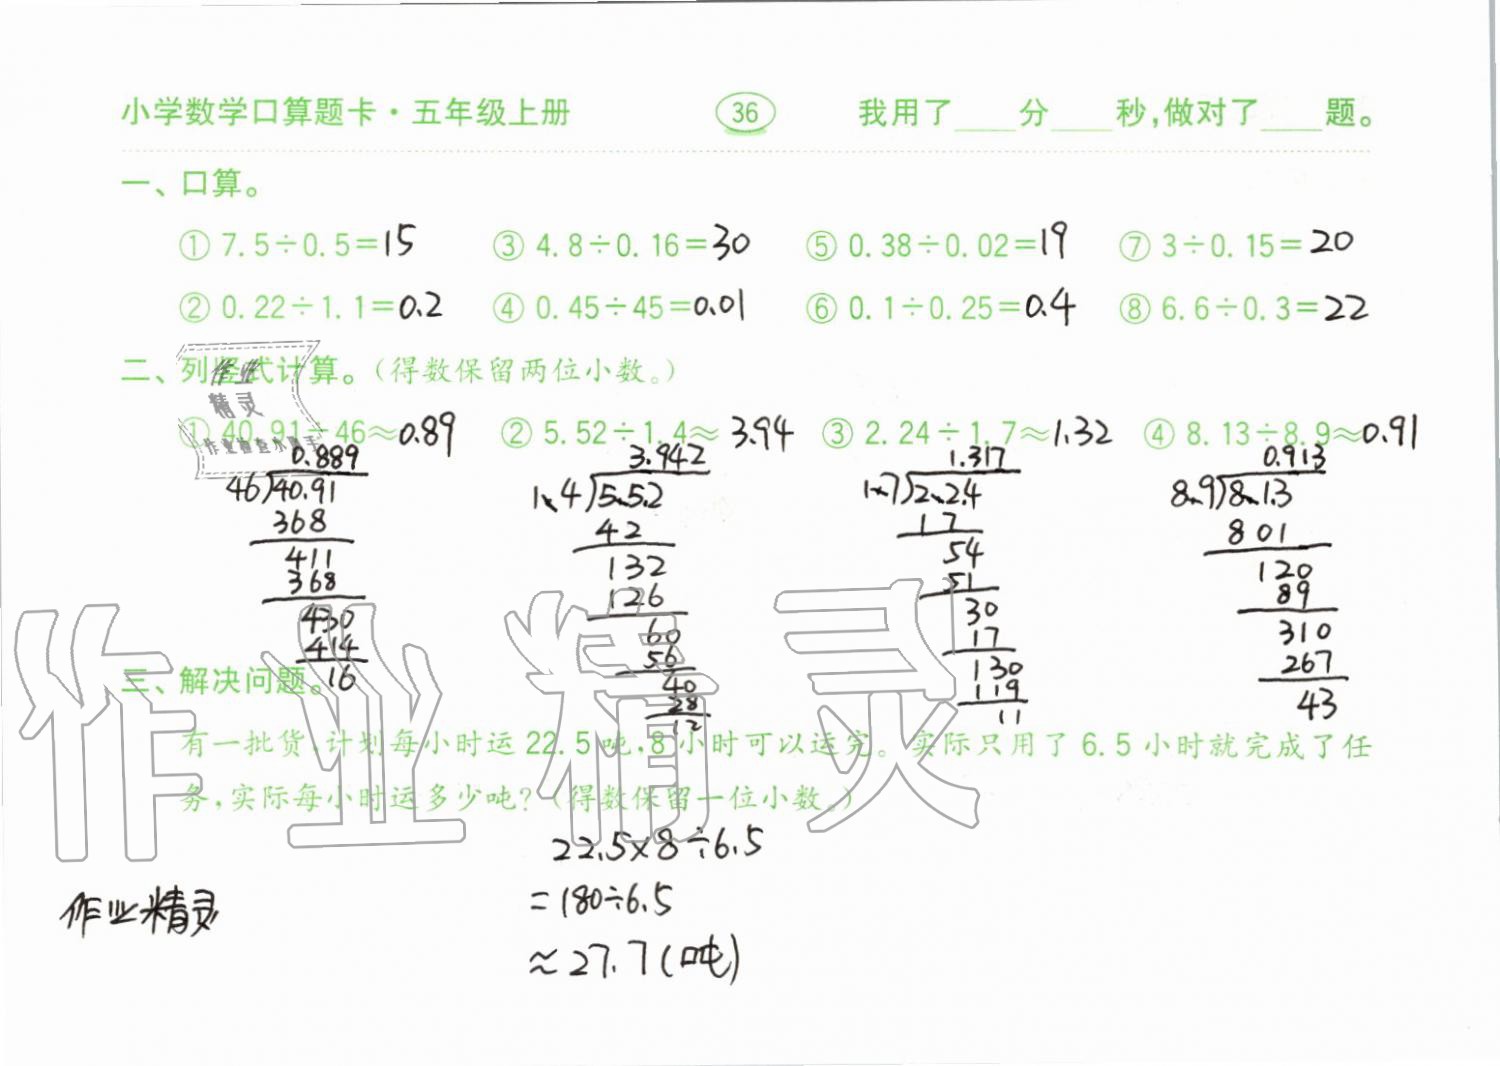 小学数学口算题卡·五年级上册 36 我用了____分____秒,做对了____题。
一、口算。
① 7.5÷0.5=15 ③ 4.8÷0.16=30 ⑤ 0.38÷0.02=19 ⑦ 3÷0.15=20
② 0.22÷1.1=0.2 ④ 0.45÷45=0.01 ⑥ 0.1÷0.25=0.4 ⑧ 6.6÷0.3=22
二、列竖式计算。(得数保留两位小数。)
作业
精灵
① 40.91÷46≈0.89 ② 5.52÷1.4≈3.94 ③ 2.24÷1.7≈1.32 ④ 8.13÷8.9≈0.91
0.889 3.942 1.317 0.913
46)40.91 1.4)5.5.2 1.7)2.2.4 8.9)8.1.3
368 42 17 801
411 132 54 120
368 126 51 89
430 60 30 310
414 56 17 267
16 40 130 43
28 119
12 11
三、解决问题。
有一批货,计划每小时运22.5吨,8小时可以运完。实际只用了6.5小时就完成了任
务,实际每小时运多少吨?(得数保留一位小数。)
作业精灵
22.5×8÷6.5
=180÷6.5
≈27.7(吨)
作业精灵